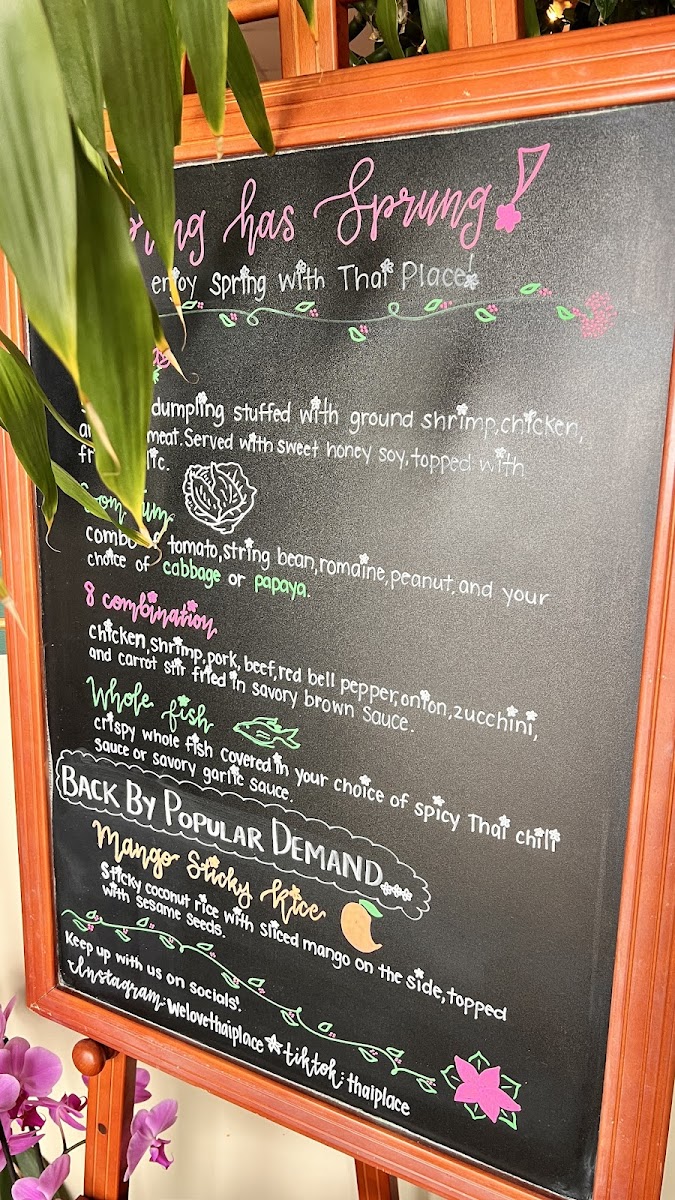 has Sprung!
enjoy spring with Thai Place!
dumpling stuffed with ground shrimp, chicken,
meat. Served with sweet honey soy, topped with
combo tomato, string bean, romaine, peanut, and your
choice of cabbage or papaya.
8 combination
chicken, shrimp, pork, beef, red bell pepper, onion, zucchini,
and carrot stir fried in savory brown sauce.
Whole fish
crispy whole fish covered in your choice of spicy Thai chili
sauce or savory garlic sauce.
BACK BY POPULAR DEMAND...
Mango Sticky Rice
Sticky coconut rice with sliced mango on the side, topped
with sesame seeds.
Keep up with us on socials!
Instagram: welovethaiplace tiktok: thaiplace